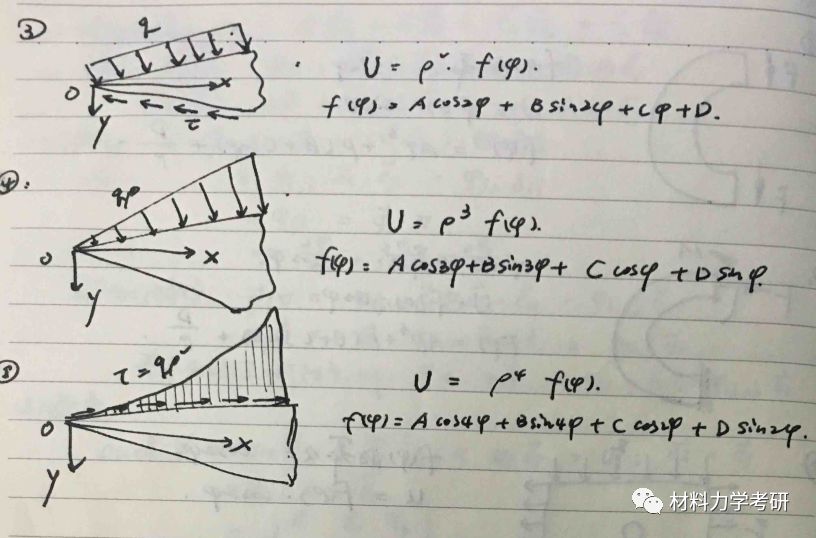 ③
q
O
x
y
τ
U = ρ² f(φ).
f(φ) = A cos2φ + B sin2φ + Cφ + D.
④:
qρ
O
x
y
U = ρ³ f(φ).
f(φ) = A cos3φ + B sin3φ + C cosφ + D sinφ.
⑤
τ = qρ²
O
x
y
U = ρ⁴ f(φ).
f(φ) = A cos4φ + B sin4φ + C cos2φ + D sin2φ.
材料力学考研